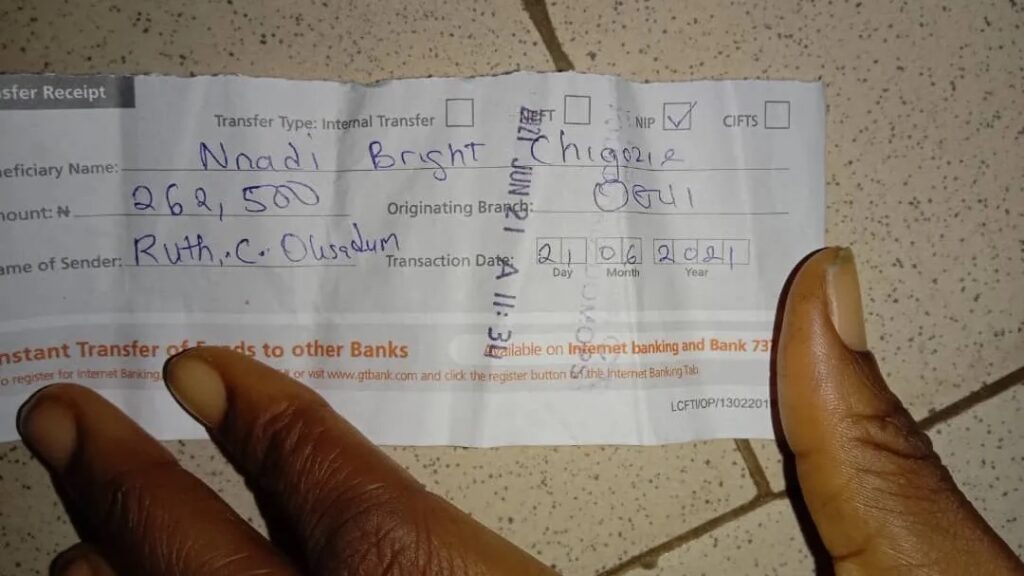 sfer Receipt
Transfer Type: Internal Transfer FT NIP CIFTS
eficiary Name: Nnadi Bright Chigozie
mount: ₦ 262,500 Originating Branch:
ame of Sender: Ruth .C. Transaction Date: 21 06 2021
Day Month Year
21 JUN 21 A 11:
nstant Transfer of Funds to other Banks
vailable on Internet banking and Bank 73
o register for Internet Banking, or visit www.gtbank.com and click the register button the Internet Banking Tab.
LCFTI/OP/1302201